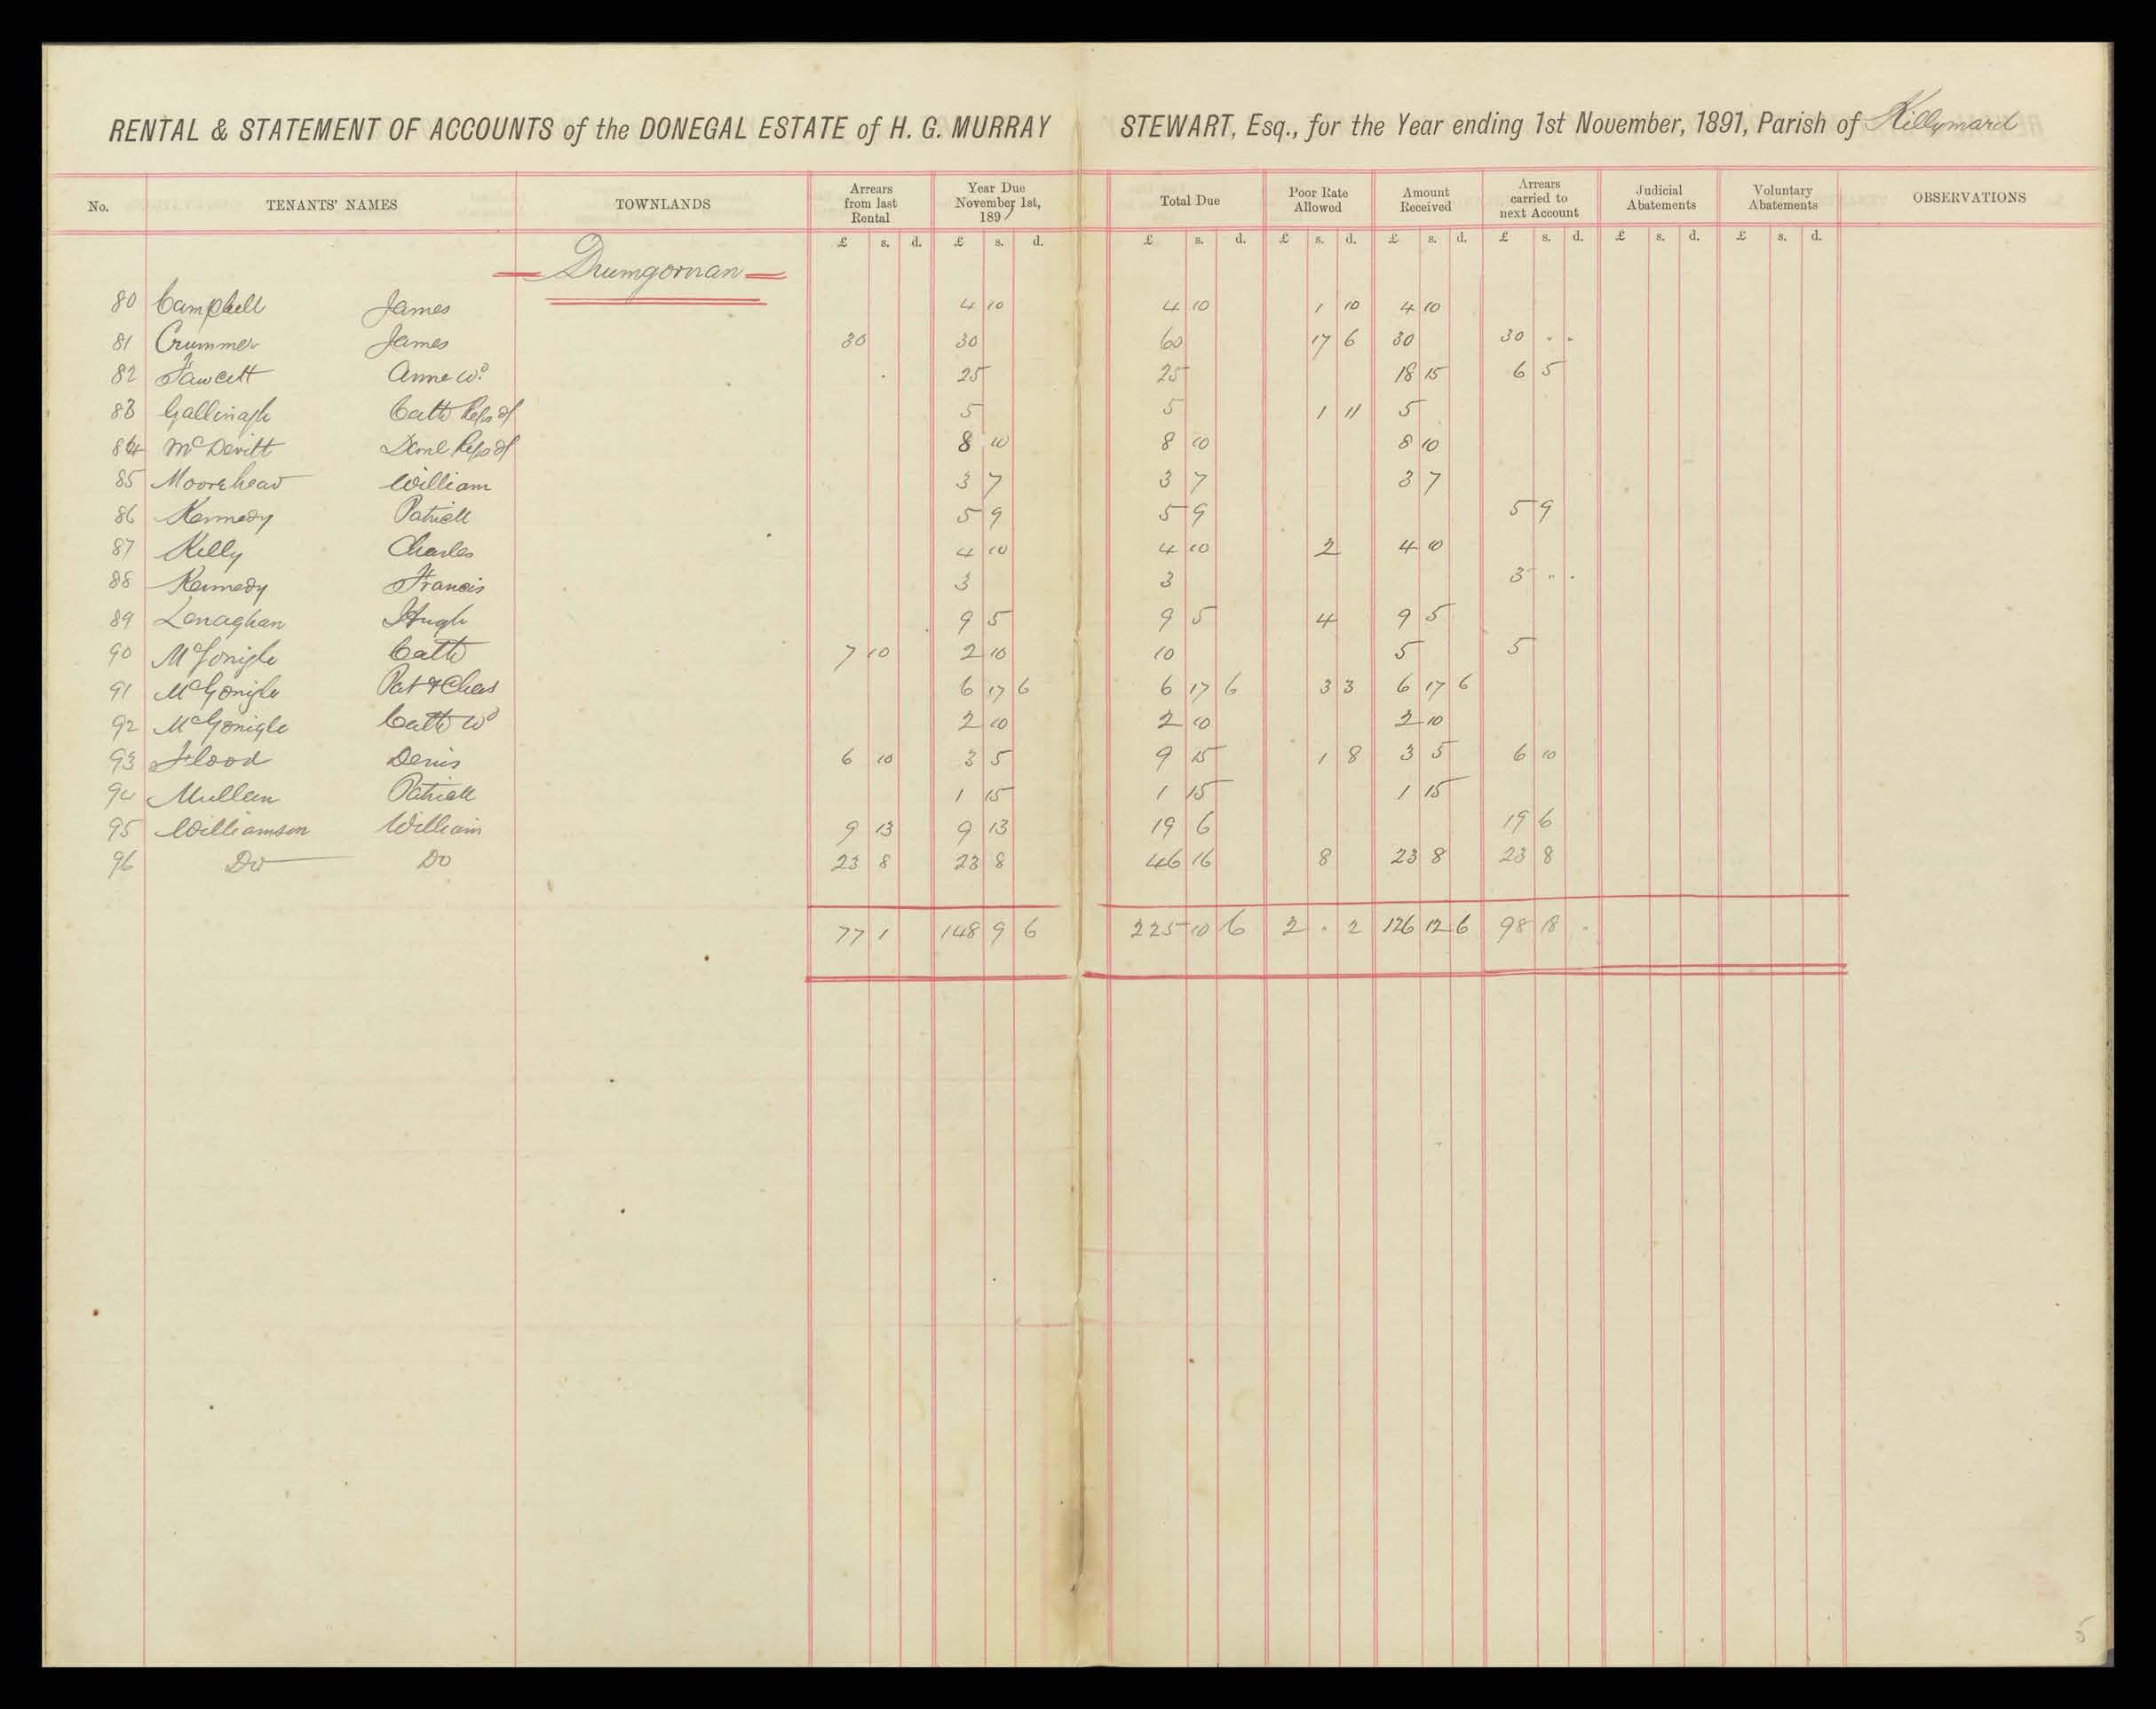 RENTAL & STATEMENT OF ACCOUNTS of the DONEGAL ESTATE of H. G. MURRAY STEWART, Esq., for the Year ending 1st November, 1891, Parish of Killymard
No. TENANTS' NAMES TOWNLANDS Arrears from last Rental Year Due November 1st, 1891 Total Due Poor Rate Allowed Amount Received Arrears carried to next Account Judicial Abatements Voluntary Abatements OBSERVATIONS
£ s. d. £ s. d. £ s. d. £ s. d. £ s. d. £ s. d. £ s. d. £ s. d.
Drumgornan
80 Campbell James 4 10 4 10 1 10 4 10
81 Crummer James 30 30 60 17 6 30 30 " "
82 Fawcett Anne Wd. 25 25 18 15 6 5
83 Gallinagh Cath Reps of 5 5 1 11 5
84 McDevitt Danl Reps of 8 10 8 10 8 10
85 Moorehead William 3 7 3 7 3 7
86 Kennedy Patrick 5 9 5 9 5 9
87 Kelly Charles 4 10 4 10 2 4 10
88 Kennedy Francis 3 3 3 " "
89 Lenaghan Hugh 9 5 9 5 4 9 5
90 McGonigle Cath 7 10 2 10 10 5 5
91 McGonigle Pat & Chas 6 17 6 6 17 6 3 3 6 17 6
92 McGonigle Cath Wd 2 10 2 10 2 10
93 Flood Denis 6 10 3 5 9 15 1 8 3 5 6 10
94 Mulleen Patrick 1 15 1 15 1 15
95 Williamson William 9 13 9 13 19 6 19 6
96 Do Do 23 8 23 8 46 16 8 23 8 23 8
77 1 148 9 6 225 10 6 2 . 2 126 12 6 98 18 .
5